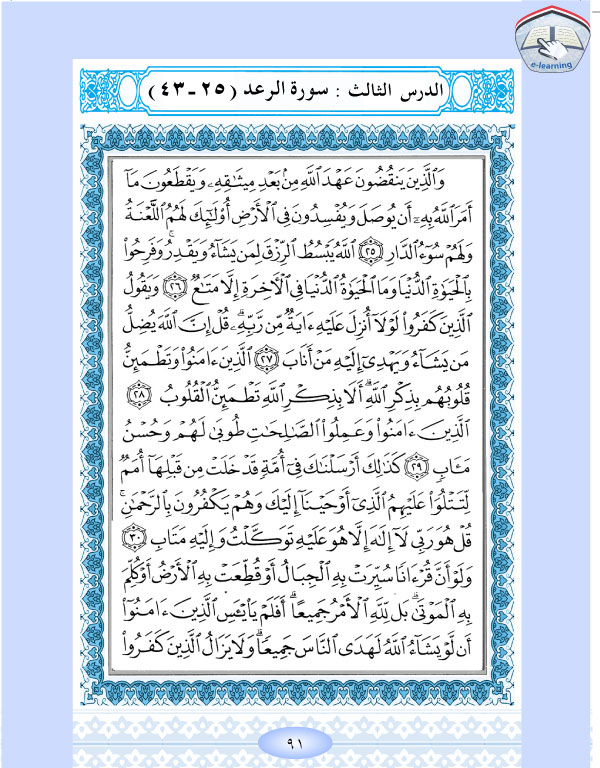 e-learning
الدرس الثالث : سورة الرعد (٢٥-٤٣)
وَٱلَّذِينَ يَنقُضُونَ عَهْدَ ٱللَّهِ مِنۢ بَعْدِ مِيثَٰقِهِۦ وَيَقْطَعُونَ مَآ
أَمَرَ ٱللَّهُ بِهِۦٓ أَن يُوصَلَ وَيُفْسِدُونَ فِى ٱلْأَرْضِ أُو۟لَٰٓئِكَ لَهُمُ ٱللَّعْنَةُ
وَلَهُمْ سُوٓءُ ٱلدَّارِ ٢٥ ٱللَّهُ يَبْسُطُ ٱلرِّزْقَ لِمَن يَشَآءُ وَيَقْدِرُ ۚ وَفَرِحُوا۟
بِٱلْحَيَوٰةِ ٱلدُّنْيَا وَمَا ٱلْحَيَوٰةُ ٱلدُّنْيَا فِى ٱلْأَخِرَةِ إِلَّا مَتَٰعٌ ٢٦ وَيَقُولُ
ٱلَّذِينَ كَفَرُوا۟ لَوْلَآ أُنزِلَ عَلَيْهِ ءَايَةٌ مِّن رَّبِّهِۦ ۗ قُلْ إِنَّ ٱللَّهَ يُضِلُّ
مَن يَشَآءُ وَيَهْدِىٓ إِلَيْهِ مَنْ أَنَابَ ٢٧ ٱلَّذِينَ ءَامَنُوا۟ وَتَطْمَئِنُّ
قُلُوبُهُم بِذِكْرِ ٱللَّهِ ۗ أَلَا بِذِكْرِ ٱللَّهِ تَطْمَئِنُّ ٱلْقُلُوبُ ٢٨
ٱلَّذِينَ ءَامَنُوا۟ وَعَمِلُوا۟ ٱلصَّٰلِحَٰتِ طُوبَىٰ لَهُمْ وَحُسْنُ
مَـَٔابٍ ٢٩ كَذَٰلِكَ أَرْسَلْنَٰكَ فِىٓ أُمَّةٍ قَدْ خَلَتْ مِن قَبْلِهَآ أُمَمٌ
لِّتَتْلُوَا۟ عَلَيْهِمُ ٱلَّذِىٓ أَوْحَيْنَآ إِلَيْكَ وَهُمْ يَكْفُرُونَ بِٱلرَّحْمَٰنِ ۚ
قُلْ هُوَ رَبِّى لَآ إِلَٰهَ إِلَّا هُوَ عَلَيْهِ تَوَكَّلْتُ وَإِلَيْهِ مَتَابِ ٣٠
وَلَوْ أَنَّ قُرْءَانًا سُيِّرَتْ بِهِ ٱلْجِبَالُ أَوْ قُطِّعَتْ بِهِ ٱلْأَرْضُ أَوْ كُلِّمَ
بِهِ ٱلْمَوْتَىٰ ۗ بَل لِّلَّهِ ٱلْأَمْرُ جَمِيعًا ۗ أَفَلَمْ يَا۟يْـَٔسِ ٱلَّذِينَ ءَامَنُوٓا۟
أَن لَّوْ يَشَآءُ ٱللَّهُ لَهَدَى ٱلنَّاسَ جَمِيعًا ۗ وَلَا يَزَالُ ٱلَّذِينَ كَفَرُوا۟
٩١